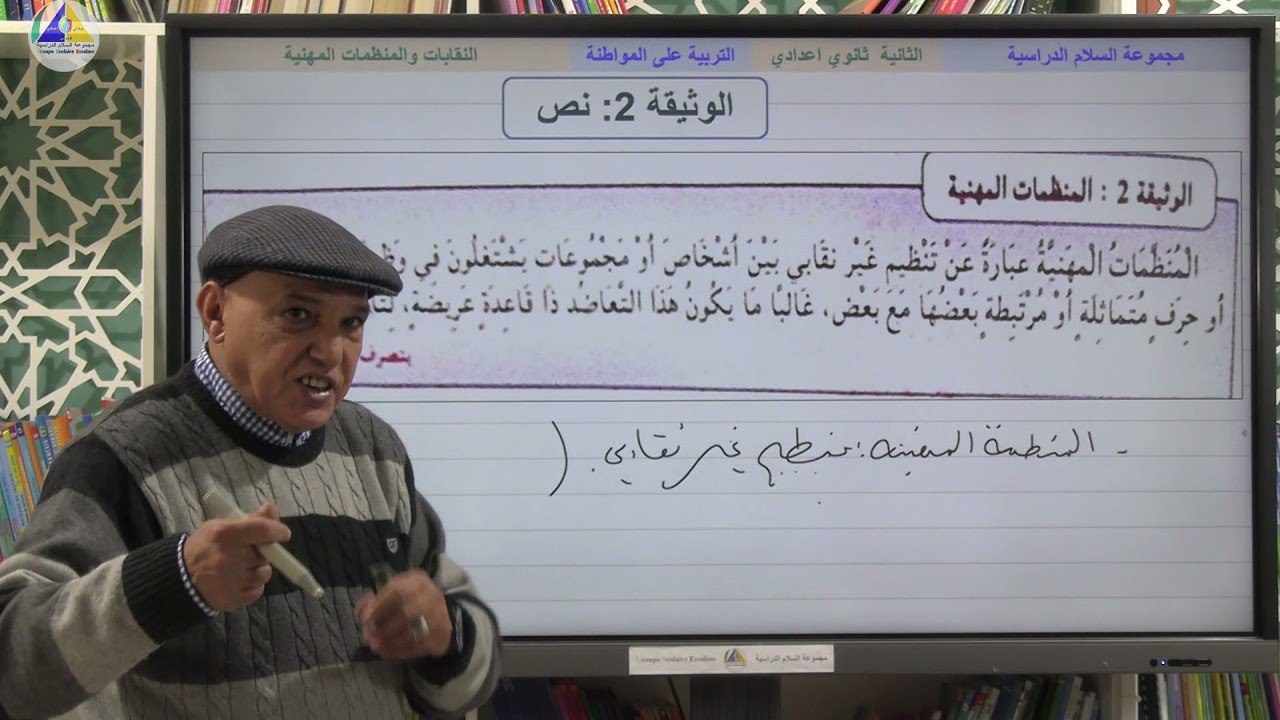 مجموعة السلام الدراسية
Groupe Scolaire Essalam
مجموعة السلام الدراسية الثانية ثانوي اعدادي التربية على المواطنة النقابات والمنظمات المهنية
الوثيقة 2: نص
الوثيقة 2 : المنظمات المهنية
الْمُنَظَّمَاتُ الْمِهَنِيَّةُ عِبَارَةٌ عَنْ تَنْظِيمٍ غَيْرِ نِقَابي بَيْنَ أَشْخَاصَ أَوْ مَجْمُوعَات يَشْتَغِلُونَ فِي
أَو حِرَفٍ مُتَمَاثِلَةٍ أَوْ مُرْتَبِطَةٍ بَعْضُهَا مَعَ بَعْض، غَالبًا مَا يَكُونُ هَذَا التَّعَاضُد ذَا قَاعِدَةٍ عَرِيضَةٍ،
بتصرف
- المنظمة المهنية: تنظيم غير نقابي (
Groupe Scolaire Essalam مجموعة السلام الدراسية